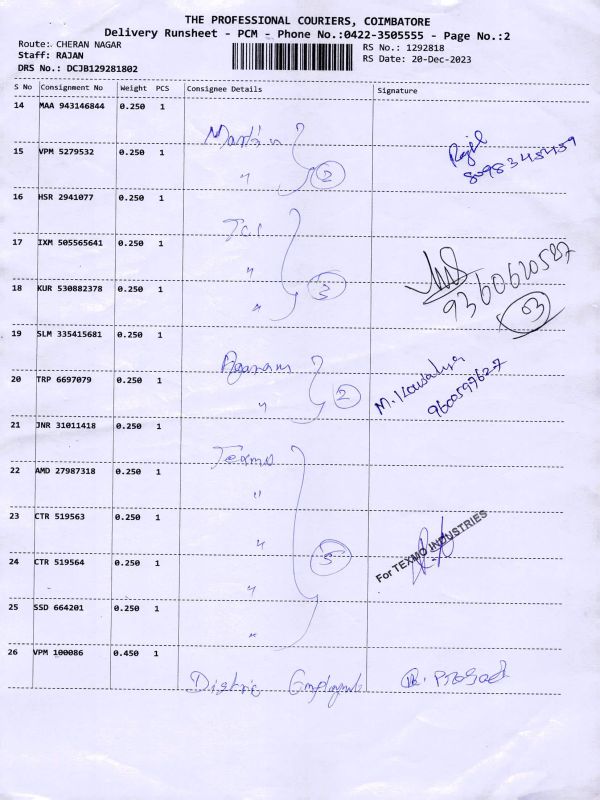 THE PROFESSIONAL COURIERS, COIMBATORE
Delivery Runsheet - PCM - Phone No.:0422-3505555 - Page No.:2
Route: CHERAN NAGAR
RS No.: 1292818
Staff: RAJAN
RS Date: 20-Dec-2023
DRS No.: DCJB129281802
S No Consignment No Weight PCS Consignee Details Signature
14 MAA 943146844 0.250 1
Martin
15 VPM 5279532 0.250 1
" 2
16 HSR 2941077 0.250 1
17 IXM 505565641 0.250 1
"
9360610587
18 KUR 530882378 0.250 1
" 3
03
19 SLM 335415681 0.250 1
Aganam
M. Kowsalya
20 TRP 6697079 0.250 1
" 2
9600597627
21 JNR 31011418 0.250 1
Texmo
22 AMD 27987318 0.250 1
"
23 CTR 519563 0.250 1
"
For TEXMO INDUSTRIES
24 CTR 519564 0.250 1
5
"
25 SSD 664201 0.250 1
"
26 VPM 100086 0.450 1